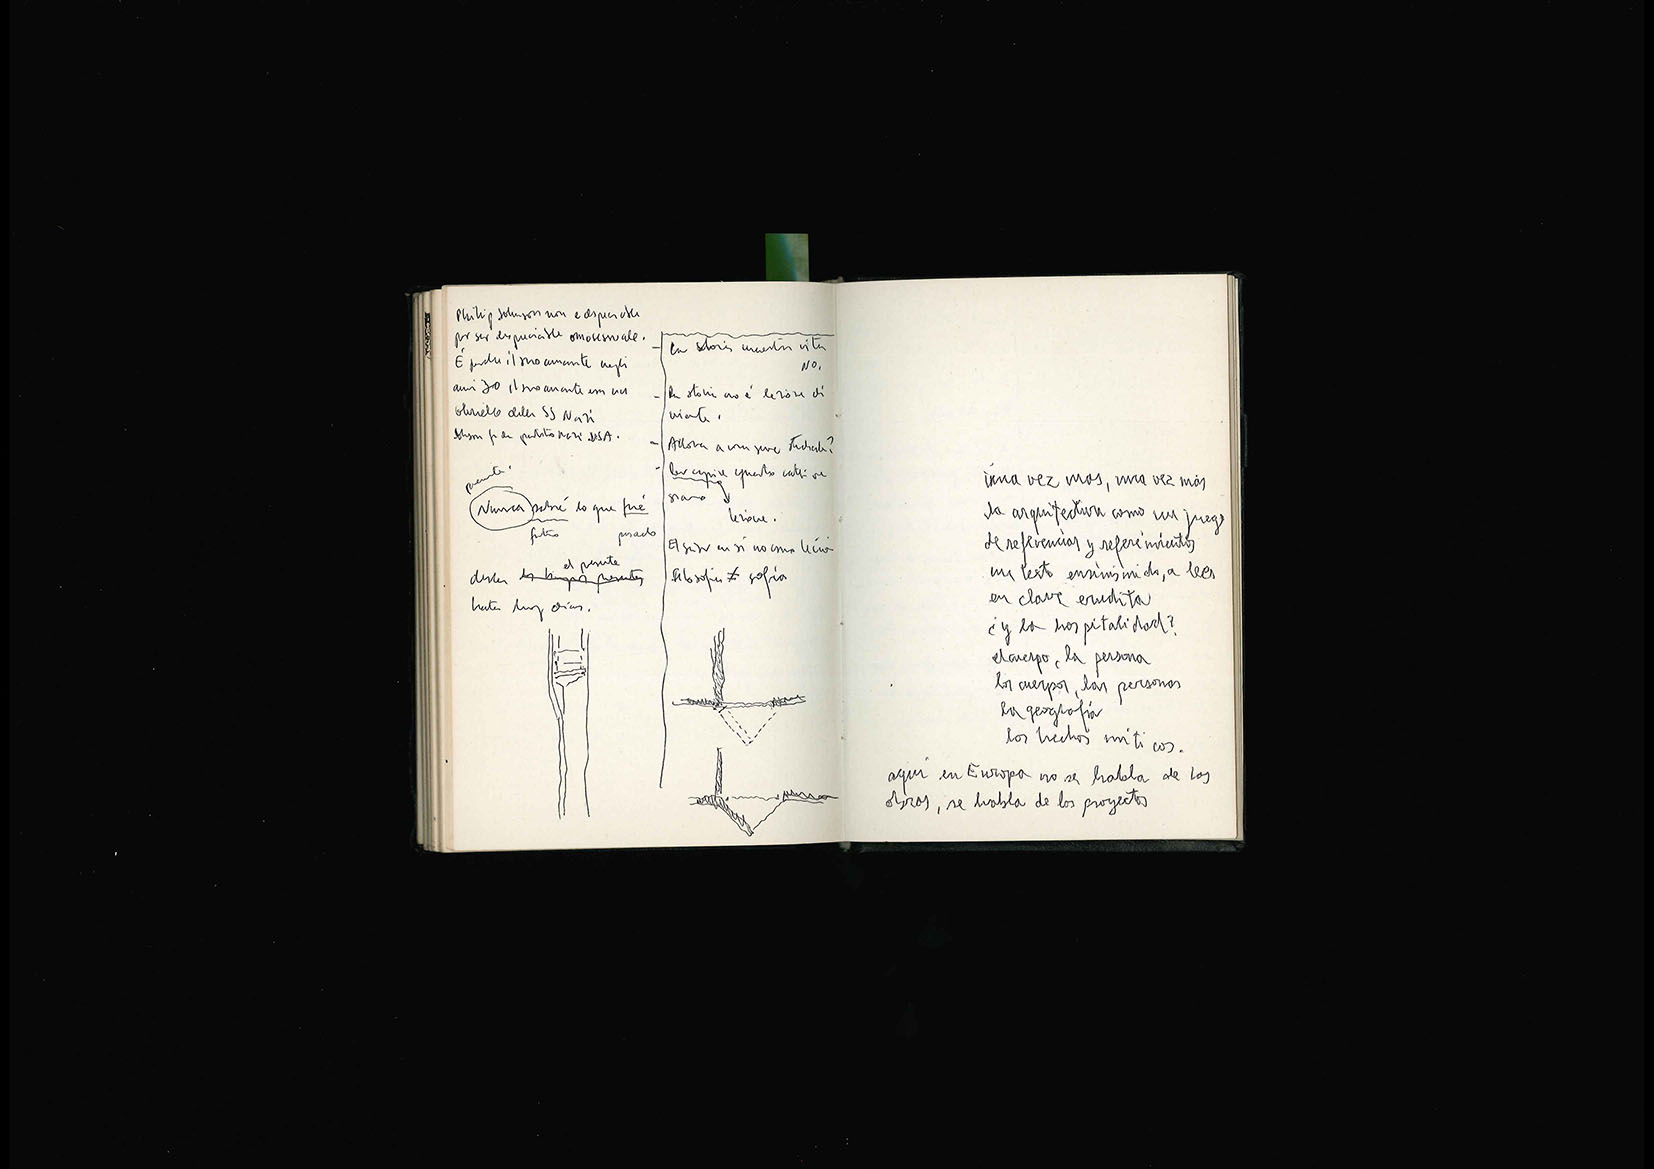 Philip Johnson non e
per ser omosessuale.
É il suo amante negli
anni 30 il suo amante era un
delle SS Nazi
nazi USA.
presente
Nunca sabré lo que fué
futuro pasado
el presente
desde los
hasta hoy dias.
La storia maestra vita
NO.
La storia no é lezione di
niente.
Allora a cosa serve studiarla?
Per capire quanto
siamo
lezione.
El en sí no como
filosofia ≠ sofia
una vez mas, una vez más
la arquitectura como un juego
de referencias y referimientos
un texto ensimismado, a leer
en clave erudita
¿y la hospitalidad?
el cuerpo, la persona
los cuerpos, las personas
la geografía
los hechos míticos.
aquí en Europa no se habla de las
obras, se habla de los proyectos